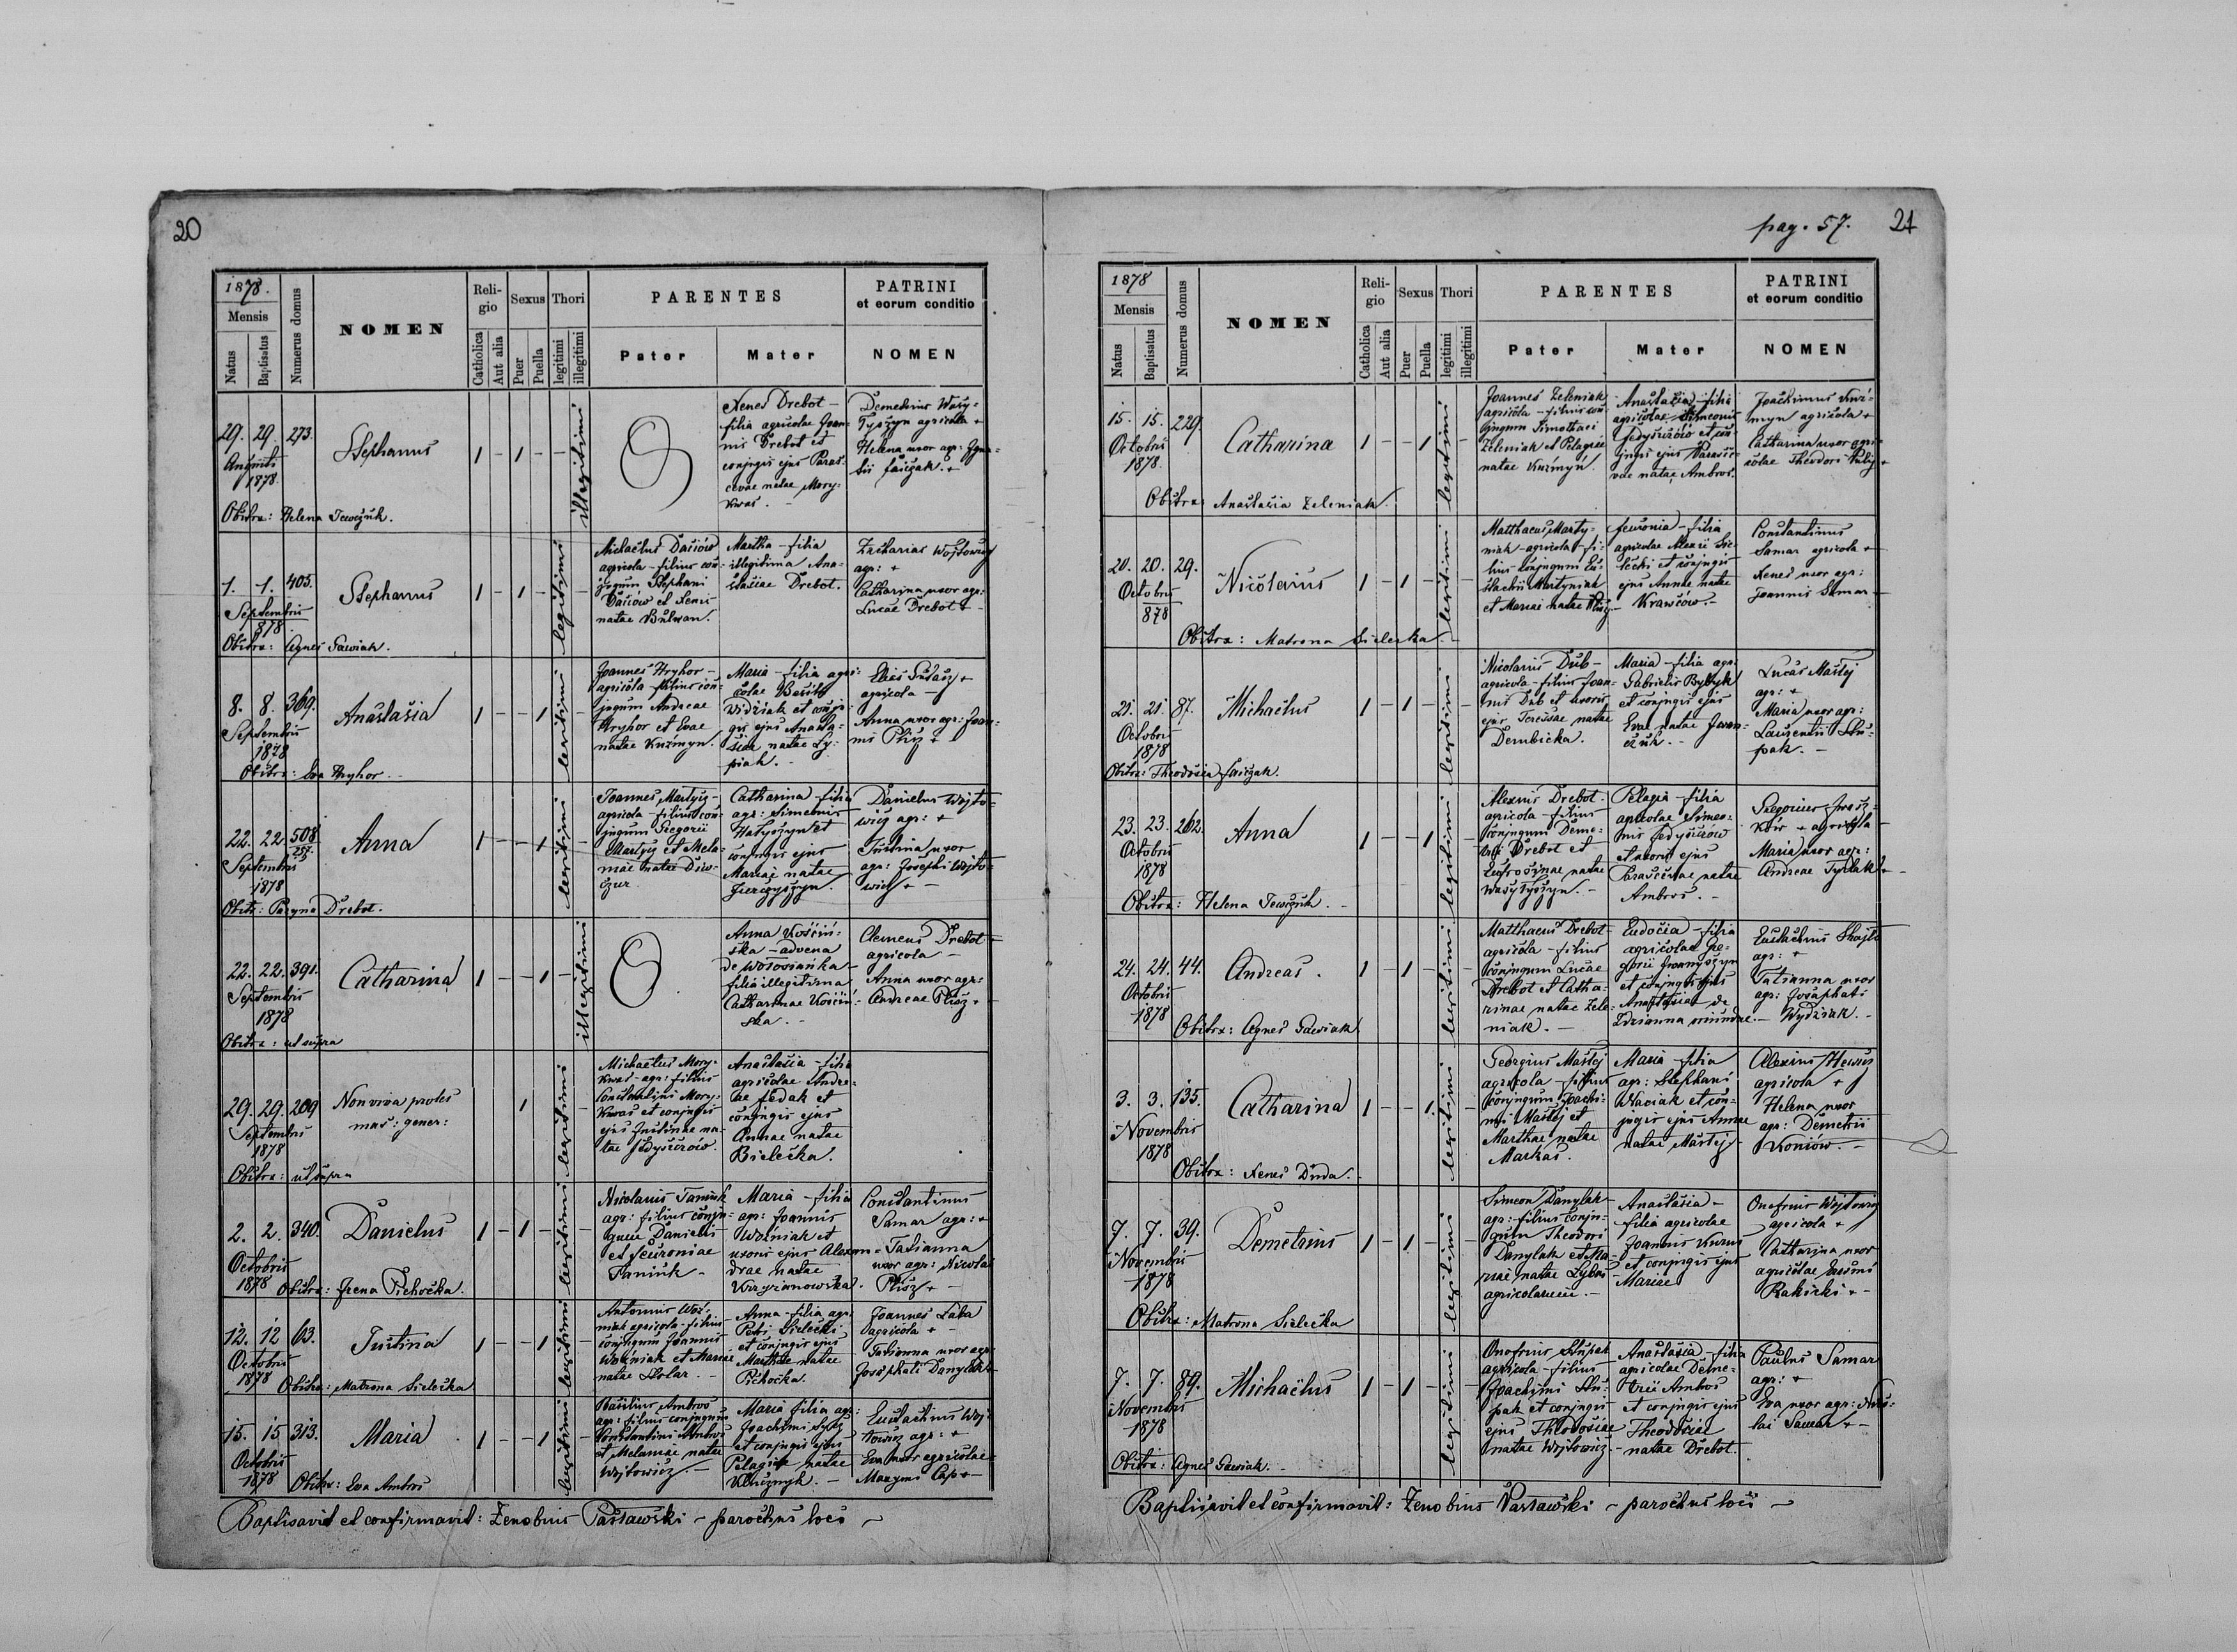 20
1878.
Mensis
Natus
Baptisatus
Numerus domus
NOMEN
Religio
Catholica
Aut alia
Sexus
Puer
Puella
Thori
legitimi
illegitimi
PARENTES
Pater
Mater
PATRINI
et eorum conditio
NOMEN
29. 29. 273.
Augusti
1878.
Stephanus
1 - 1 - -
illegitimi
Xenes Drebot -
filia agricolae Joan-
nis Drebot et
conjugis ejus Paras-
cevae natae Mory-
kwas. -
Demetrius Wasy-
agricola +
Helena uxor agr: Igna-
tii
Obstrx: Helena
1. 1. 405.
Septembris
1878
Stephanus
1 - 1 - legitimi -
Michaelus Daciów
agricola - filius con-
jugum Stephani
Daciów et Xeniae
natae Bulwan.
Martha - filia
illegitima Ana-
stasiae Drebot.
Zacharias Wojtowicz
agr: +
Catharina uxor agr:
Lucae Drebot + -
Obstrx: Agnes Gawiak.
8. 8. 369.
Septembris
1878
Anastasia
1 - - 1 legitimi -
Joannes Hryhor -
agricola - filius con-
jugum Andreae
Hryhor et Evae
natae Kuźmyn.
Maria - filia agri-
colae Basilii
Widziak et conju-
gis ejus Anasta-
siae natae Ły-
piak. -
Elias
agricola -
Anna uxor agr: Joan-
nis Plisz +
Obstrx: Eva Hryhor. -
22. 22. 508
257.
Septembris
1878
Anna
1 - - 1 legitimi -
Joannes
agricola - filius con-
jugum Gregorii
et Mela-
niae natae
Catharina - filia
agr: Simeonis
Hałyszyn et
conjugis ejus
Mariae natae
Danielus Wojto-
wicz agr: +
Justina uxor
agr: Josephi Wojto-
wicz + -
Obstx: Drebot.
22. 22. 391.
Septembris
1878
Catharina
1 - - 1 -
illegitimi
Anna
- advena
de Wołosianka -
filia illegitima
Catharinae
Clemens Drebot +
agricola -
Anna uxor agr:
Andreae Plisz +
Obstrx: ut supra
29. 29. 209
Septembris
1878
Non viva proles
mas: gener:
1 legitimi -
Michaelus Mory-
kwas - agr: filius
Constantini Mory-
kwas et conjugis
ejus Justinae na-
tae Fedyszczów.
Anastasia - filia
agricolae Andre-
ae Fedak et
conjugis ejus
Annae natae
Bielecka.
Obstrx: ut supra
2. 2. 340.
Octobris
1878
Danielus
1 - 1 - legitimi -
Nicolaus Taniuk
agr: filius conju-
gum Danielis
et Feuroniae
Taniuk -
Maria - filia
agr: Joannis
Woźniak et
uxoris ejus Alexan-
drae natae
Constantinus
Samar agr: +
Tatianna
uxor agr: Nicolai
Plisz + -
Obstrx: Irena Pichocka.
12. 12 63.
Octobris
1878
Justina
1 - - 1 legitimi -
Antonius Woź-
niak agricola - filius
conjugum Joannis
Woźniak et Mariae
natae Stolar. -
Anna - filia agr:
Petri Sielecki
et conjugis ejus
Marthae natae
Pichocka.
Joannes Laba
agricola + -
Tatianna uxor agr:
Josaphati Danylak +
Obstrx: Matrona Sielecka
15. 15 313.
Octobris
1878
Maria
1 - - 1 legitimi -
Basilius Ambros
agr: filius conjugum
Constantini Ambros
et Melaniae natae
Wojtowicz. -
Maria filia agr:
Joachimi
et conjugis ejus
Pelagiae natae
Eustachius Woj-
towicz agr: +
Eva uxor agricolae
Maxymi Cap + -
Obstrx: Eva Ambros
Baptisavit et confirmavit: Zenobius Pasławski - parochus loci -
pag. 57. 21
1878
Mensis
Natus
Baptisatus
Numerus domus
NOMEN
Religio
Catholica
Aut alia
Sexus
Puer
Puella
Thori
legitimi
illegitimi
PARENTES
Pater
Mater
PATRINI
et eorum conditio
NOMEN
15. 15. 229.
Octobris
1878.
Catharina
1 - - 1 legitimi -
Joannes Zeleniak
agricola - filius con-
jugum Timothaei
Zeleniak et Pelagiae
natae Kuźmyn.
Anastasia - filia
agricolae Simeonis
Fedyszczów et con-
jugis ejus Parasce-
vae natae Ambros.
Joachimus Kuź-
myn agricola +
Catharina uxor agri-
colae Theodori
Obstrx: Anastasia Zeleniak.
20. 20. 29.
Octobris
878
Nicolaus
1 - 1 - legitimi -
Matthaeus Marty-
niak - agricola - fi-
lius conjugum Eu-
stachii Martyniak
et Mariae natae Plisz -
Feuronia - filia
agricolae Alexii Sie-
lecki et conjugis
ejus Annae natae
Krawców. -
Constantinus
Samar agricola +
Xenes uxor agr:
Joannis Samar -
Obstrx: Matrona Sielecka. -
21. 21. 87.
Octobris
1878
Michaelus
1 - 1 - legitimi -
Nicolaus Dub -
agricola - filius Joan-
nis Dub et uxoris
ejus Teressae natae
Dembicka.
Maria - filia agr.
Gabrielis
et conjugis ejus
Evae natae Iwan-
czuk. -
Lucas Masłej
agr: +
Maria uxor agr:
Laurentii Stu-
pak. -
Obstrx: Theodosia
23. 23. 262.
Octobris
1878
Anna
1 - - 1 legitimi -
Alexius Drebot -
agricola - filius
conjugum Deme-
trii Drebot et
Eufrosinae natae
Pelagia - filia
agricolae Simeo-
nis Fedyszczów
et uxoris ejus
Parascevae natae
Ambros. -
Gregorius
+ agricola -
Maria uxor agr:
Andreae +
Obstrx: Helena
24. 24. 44.
Octobris
1878
Andreas.
1 - 1 - legitimi -
Matthaeus Drebot -
agricola - filius
conjugum Lucae
Drebot et Catha-
rinae natae Zele-
niak. -
Eudocia - filia
agricolae Gre-
gorii
et conjugis ejus
Anastasiae de
-
Eustachius
agr: +
Tatianna uxor
agr: Josaphati
Wydziak. -
Obstrx: Agnes Gawiak
3. 3. 135.
Novembris
1878
Catharina
1 - - 1 legitimi -
Georgius Masłej
agricola - filius
conjugum Joachi-
mi Masłej et
Marthae natae
Markas.
Maria - filia
agr: Stephani
et con-
jugis ejus Annae
natae Masłej -
Alexius
agricola +
Helena uxor
agr: Demetrii
Koniów. -
Obstrx: Xenes Duda. -
7. 7. 39.
Novembris
1878
Demetrius
1 - 1 - legitimi -
Simeon Danylak -
agr: filius conju-
gum Theodori
Danylak et Ma-
riae natae
agricolarum. -
Anastasia -
filia agricolae
Joannis
et conjugis ejus
Mariae
Onofrius Wojtowicz
agricola +
Catharina uxor
agricolae
Rakicki + -
Obstrx: Matrona Sielecka
7. 7. 89.
Novembris
1878
Michaelus
1 - 1 - legitimi -
Onofrius Stupak
agricola - filius
Joachimi Stu-
pak et conjugis
ejus Theodosiae
natae Wojtowicz. -
Anastasia - filia
agricolae Deme-
trii Ambros
et conjugis ejus
Theodosiae
natae Drebot.
Paulus Samar
agr: +
Eva uxor agr: Nico-
lai Samar + -
Obstrx: Agnes Gawiak. -
Baptisavit et confirmavit: Zenobius Pasławski - parochus loci -